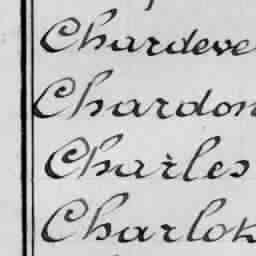 Chardeve
Chardon
Charles
Charlok